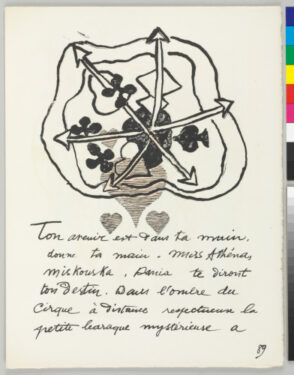 Ton avenir est dans ta main,
donne ta main. Miss Athéna,
miskouska, Denia te diront
ton destin. Dans l'ombre du
Cirque à distance respectueuse la
petite baraque mystérieuse a
89